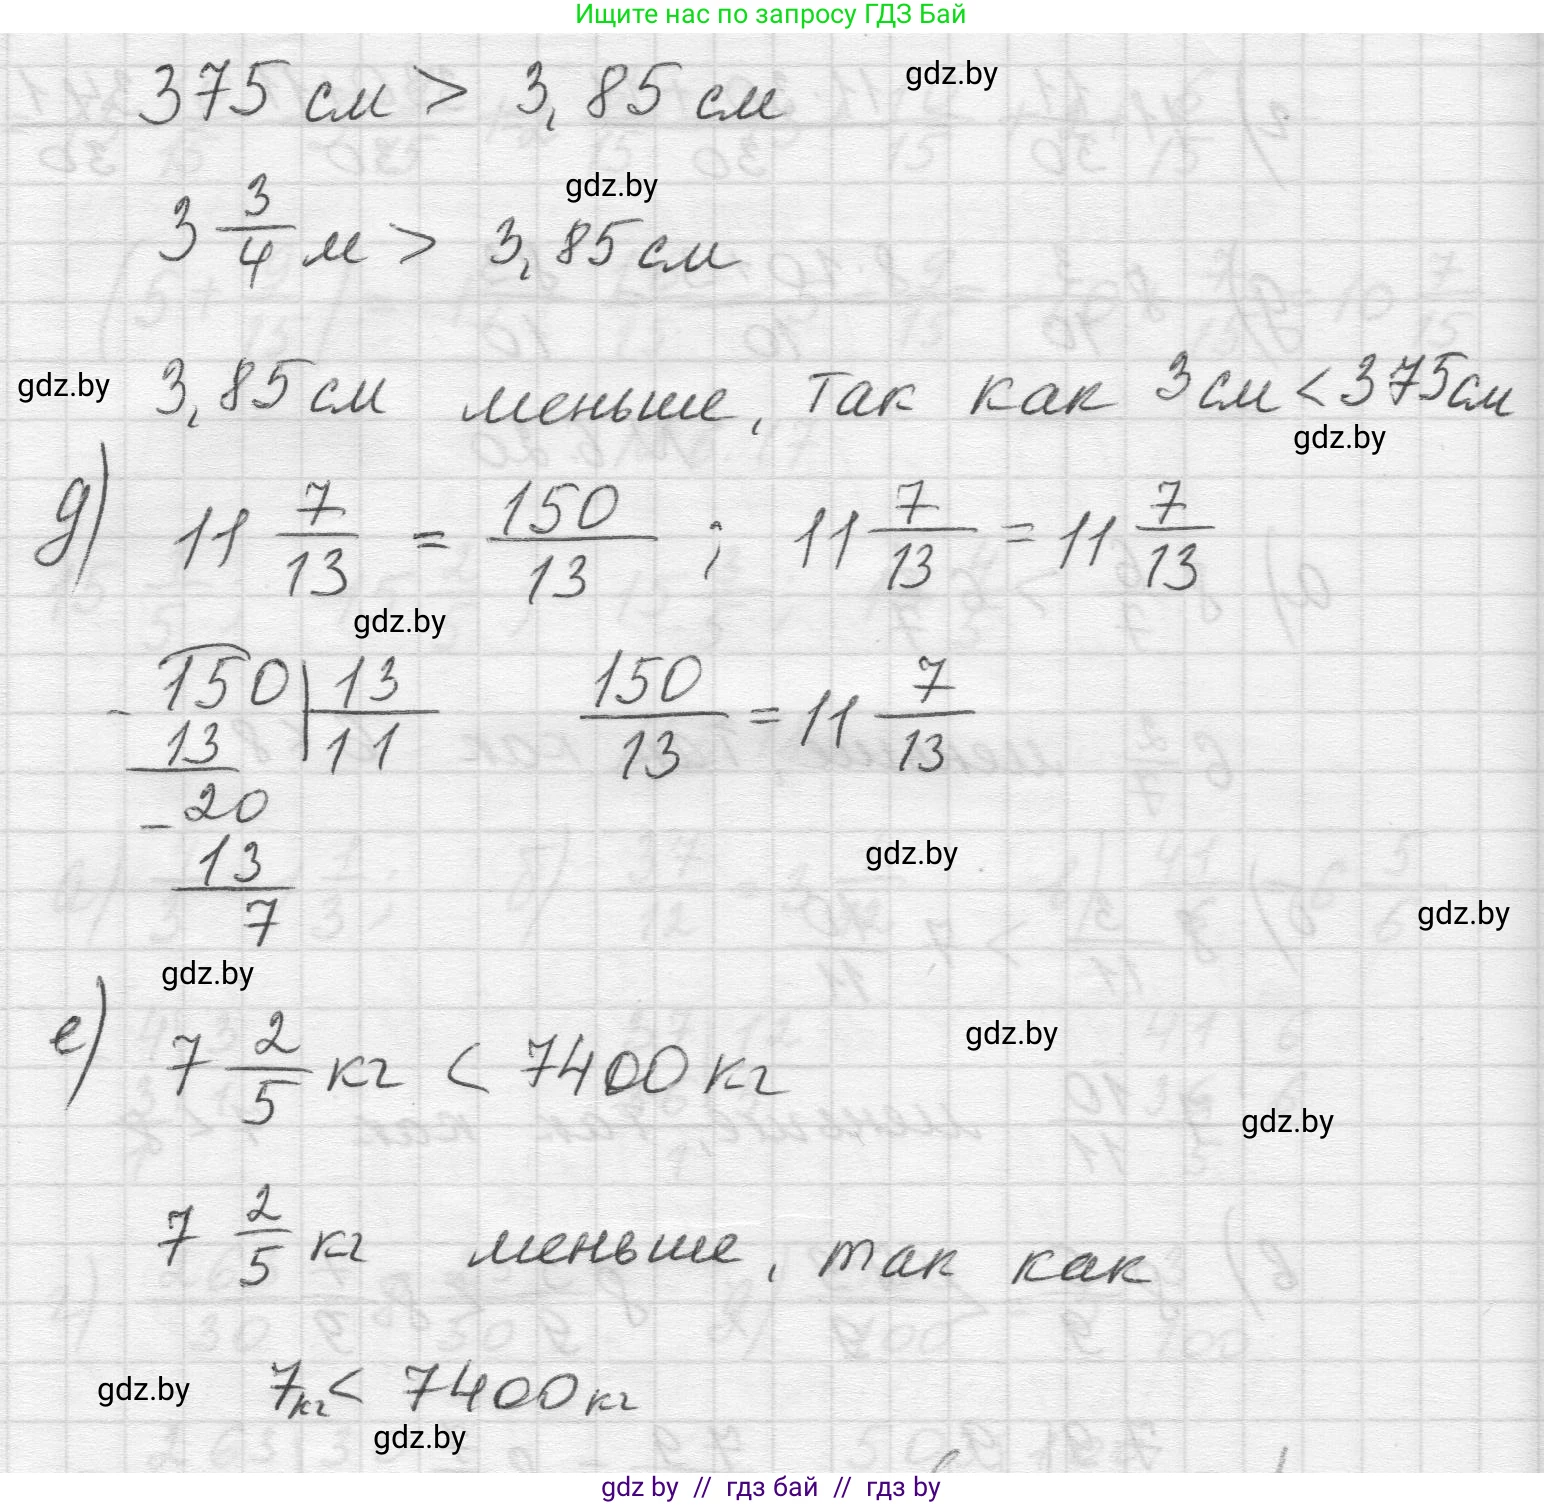 Ищите нас по запросу ГДЗ Бай
375 см > 3,85 см
gdz.by
gdz.by
3 3/4 м > 3,85 см
gdz.by
3,85 см меньше, так как 3 см < 375 см
gdz.by
д) 11 7/13 = 150/13 ; 11 7/13 = 11 7/13
gdz.by
- 150 | 13
13 | 11
150/13 = 11 7/13
- 20
13
7
gdz.by
gdz.by
gdz.by
е) 7 2/5 кг < 7400 кг
gdz.by
gdz.by
7 2/5 кг меньше, так как
7 кг < 7400 кг
gdz.by
gdz.by
gdz by // гдз бай // гдз by